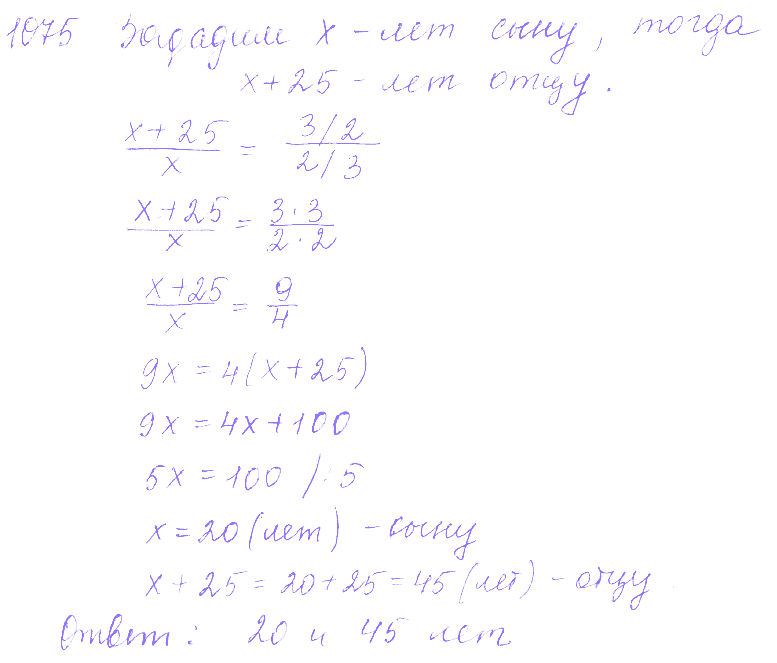 1075 Зададим x - лет сыну, тогда
x + 25 - лет отцу.
x + 25 / x = 3/2 / 2/3
x + 25 / x = 3 · 3 / 2 · 2
x + 25 / x = 9 / 4
9x = 4(x + 25)
9x = 4x + 100
5x = 100 /: 5
x = 20 (лет) - сыну
x + 25 = 20 + 25 = 45 (лет) - отцу
Ответ: 20 и 45 лет